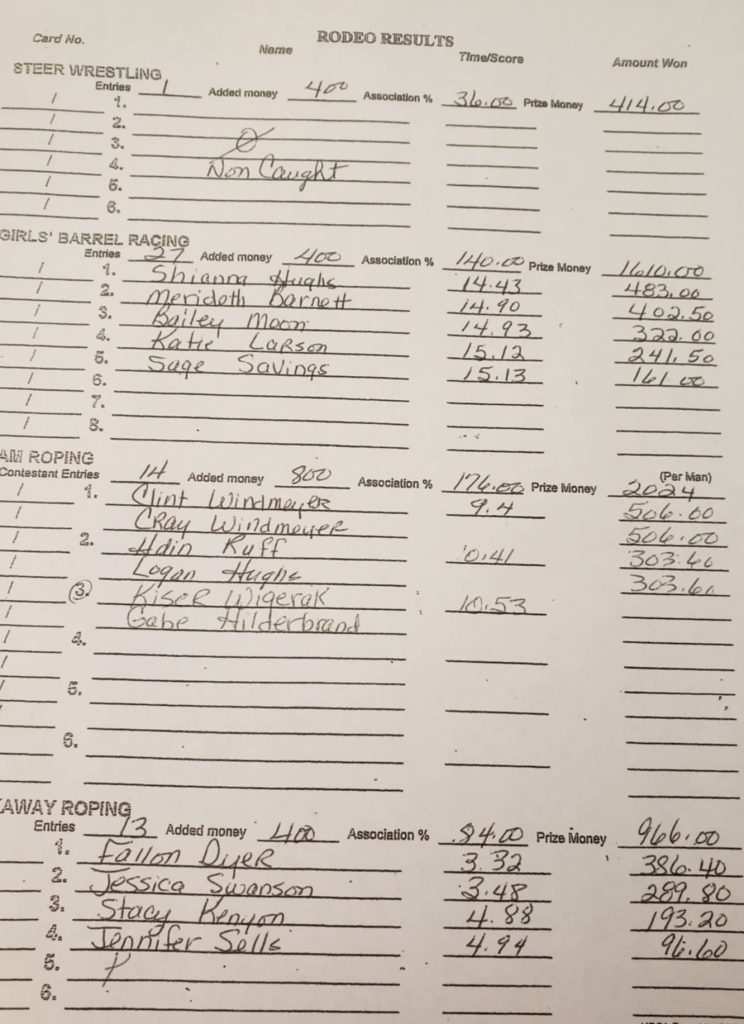 RODEO RESULTS
Card No. Name Time/Score Amount Won
STEER WRESTLING
Entries 1 Added money 400 Association % 36.00 Prize Money 414.00
/ 1.
/ 2.
/ 3. Ø
/ 4. Non Caught
/ 5.
/ 6.
GIRLS' BARREL RACING
Entries 27 Added money 400 Association % 140.00 Prize Money 1610.00
/ 1. Shianna Hughs 14.43 483.00
/ 2. Meridoth Barnett 14.90 402.50
/ 3. Bailey Moon 14.93 322.00
/ 4. Katie Larson 15.12 241.50
/ 5. Sage Savings 15.13 161.00
/ 6.
/ 7.
/ 8.
AM ROPING
(Per Man)
Contestant Entries 14 Added money 800 Association % 176.00 Prize Money 2024
/ 1. Clint Windmeyer 9.4 506.00
/ Cray Windmeyer 506.00
/ 2. Hdin Ruff 10.41 303.60
/ Logan Hughs 303.60
/ 3. Kiser Wigerak 10.53
/ Gabe Hilderbrand
/ 4.
/
/ 5.
/
6.
AWAY ROPING
Entries 13 Added money 400 Association % 84.00 Prize Money 966.00
1. Fallon Dyer 3.32 386.40
2. Jessica Swanson 3.48 289.80
3. Stacy Kenyon 4.88 193.20
4. Jennifer Sells 4.94 96.60
5.
6.